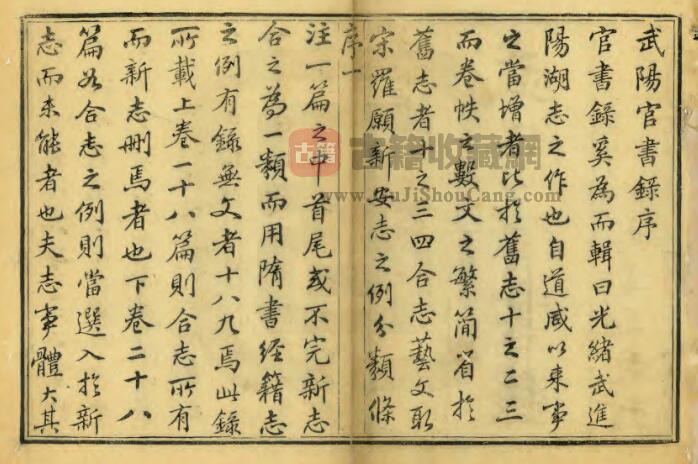 武陽官書錄序
官書錄奚為而輯曰光緒武進
陽湖志之作也自道咸以來事
之當增者比於舊志十之二三
而卷帙之數文之繁簡省於
舊志者十之三四合志藝文取
宋羅願新安志之例分類條
序一
注一篇之中首尾或不完新志
合之為一類而用隋書經籍志
之例有錄無文者十八九焉此錄
所載上卷一十八篇則合志所有
而新志刪焉者也下卷二十八
篇如合志之例則當選入於新
志而未能者也夫志事體大其
古籍
古籍收藏網
www.GuJiShouCang.com